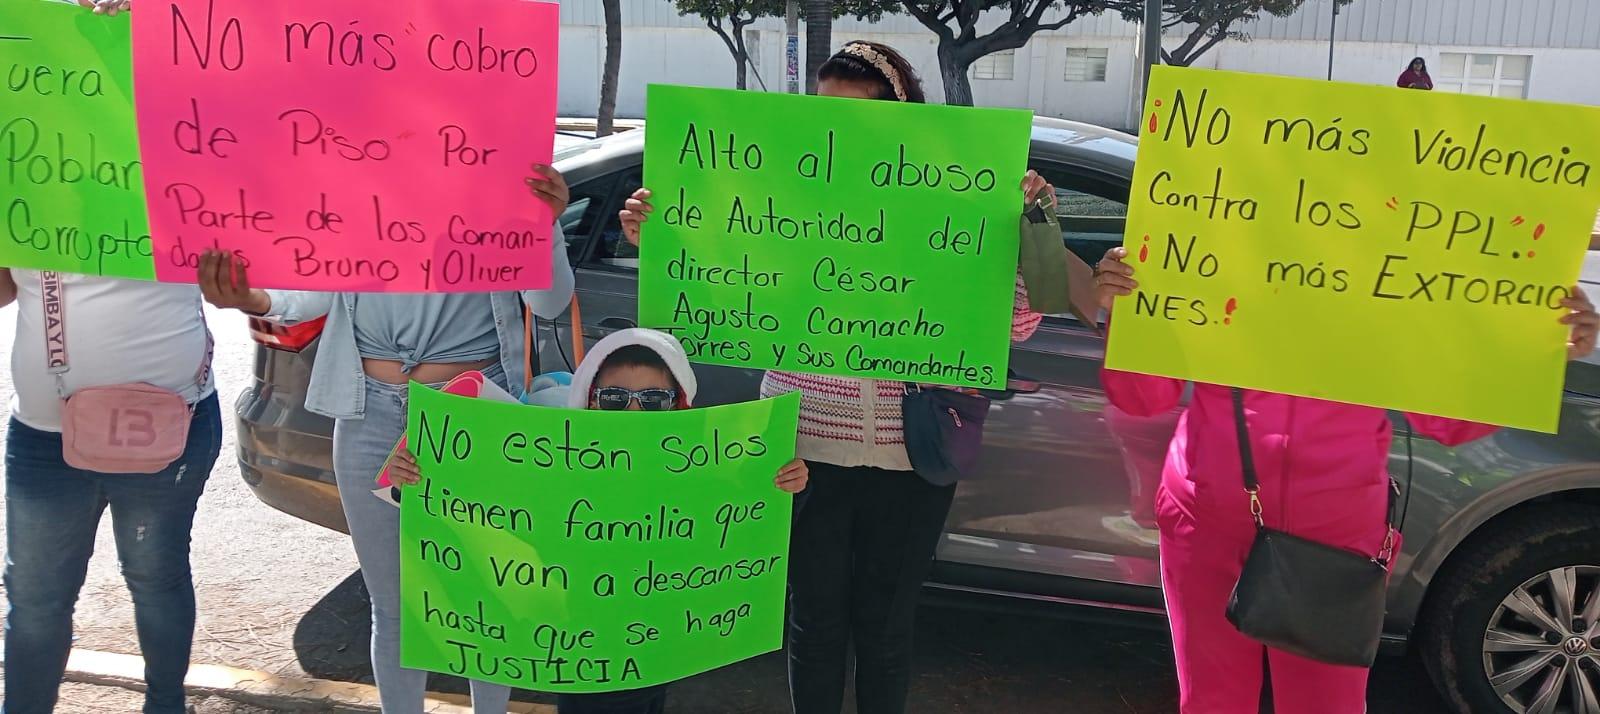 uera
Poblan
Corrupto
No más "cobro
de Piso" Por
Parte de los Coman-
Bruno y Oliver
Alto al abuso
de Autoridad del
director César
Agusto Camacho
Torres y Sus Comandantes.
¡No más Violencia
Contra los "PPL"!
¡No más EXTORCIO
NES.!
No están Solos
tienen familia que
no van a descansar
hasta que se haga
JUSTICIA
BIMBA Y LO